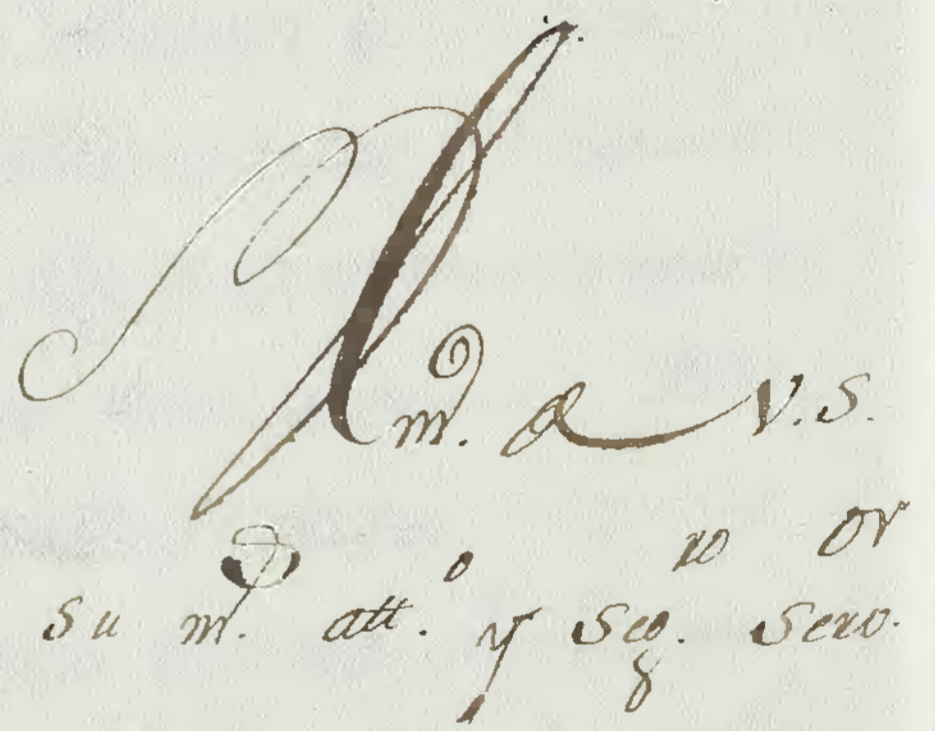 m. a V.S.
Su m. att.º y Seg.ro Serv.or